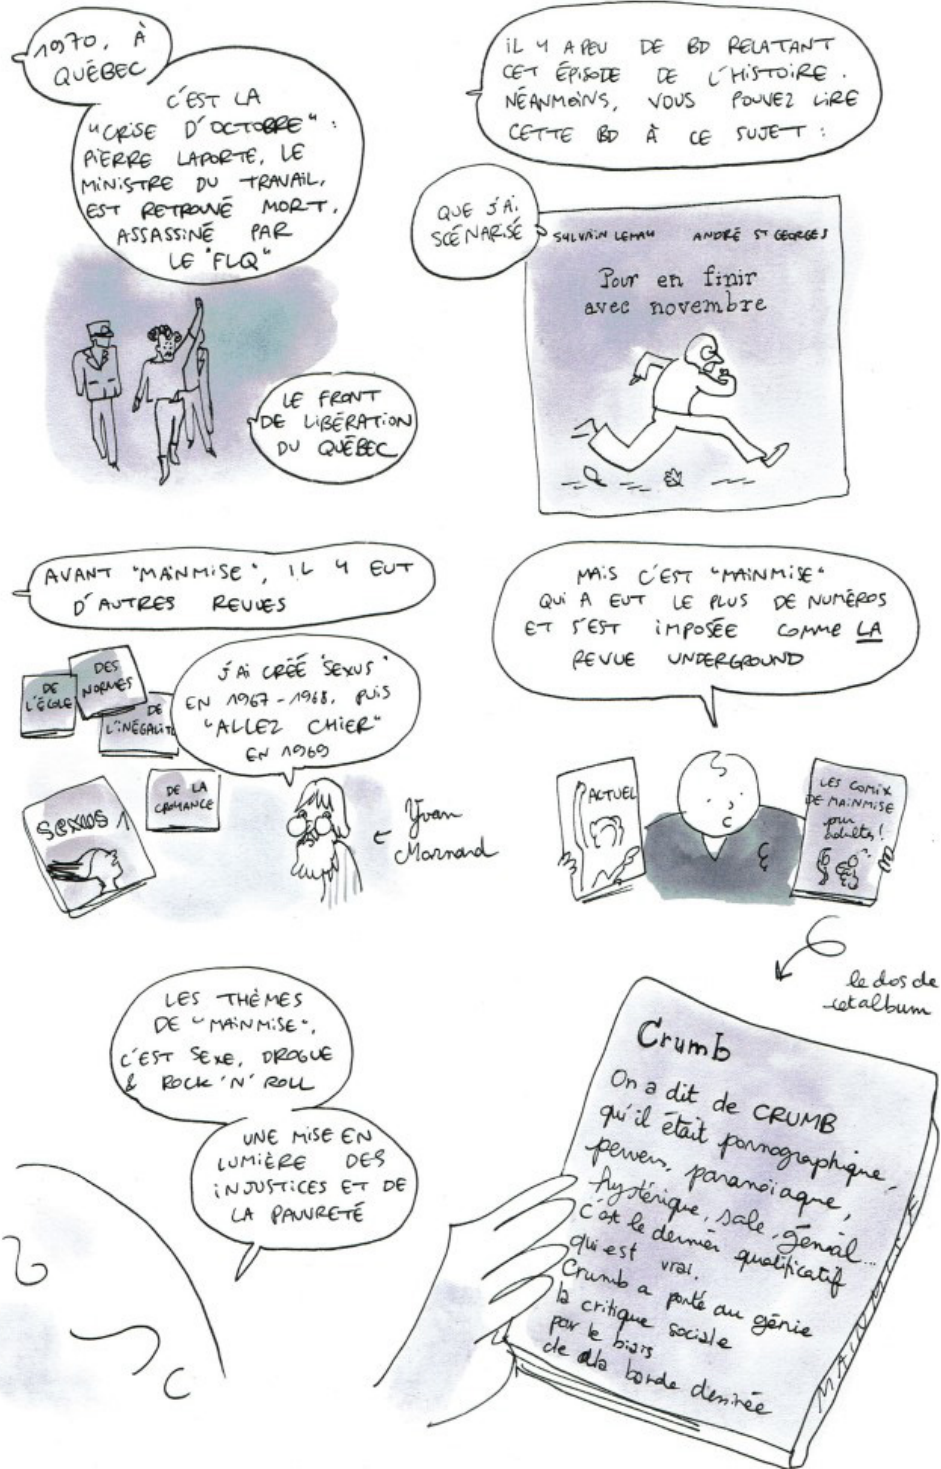 1970, À
QUÉBEC
C'EST LA
"CRISE D'OCTOBRE" :
PIERRE LAPORTE, LE
MINISTRE DU TRAVAIL,
EST RETROUVÉ MORT,
ASSASSINÉ PAR
LE "FLQ"
LE FRONT
DE LIBÉRATION
DU QUÉBEC
IL Y A PEU DE BD RELATANT
CET ÉPISODE DE L'HISTOIRE.
NÉANMOINS, VOUS POUVEZ LIRE
CETTE BD À CE SUJET :
QUE J'AI
SCÉNARISÉ
SYLVAIN LEMAY ANDRÉ ST GEORGES
Pour en finir
avec novembre
AVANT "MAINMISE", IL Y EUT
D'AUTRES REVUES
DE
L'ÉCOLE
DES
NORMES
DE
L'INÉGALITÉ
DE LA
CROYANCE
SEXUS 1
J'AI CRÉÉ "SEXUS"
EN 1967-1968, PUIS
"ALLEZ CHIER"
EN 1969
Yvan
Mornard
MAIS C'EST "MAINMISE"
QUI A EUT LE PLUS DE NUMÉROS
ET S'EST IMPOSÉE COMME LA
REVUE UNDERGROUND
ACTUEL
LES COMIX
DE MAINMISE
pur
adultes!
le dos de
cet album
LES THÈMES
DE "MAINMISE",
C'EST SEXE, DROGUE
& ROCK 'N' ROLL
UNE MISE EN
LUMIÈRE DES
INJUSTICES ET DE
LA PAUVRETÉ
Crumb
On a dit de CRUMB
qu'il était pornographique,
pervers, paranoïaque,
hystérique, sale, génial...
C'est le dernier qualificatif
qui est vrai.
Crumb a porté au génie
la critique sociale
par le biais
de la bande dessinée